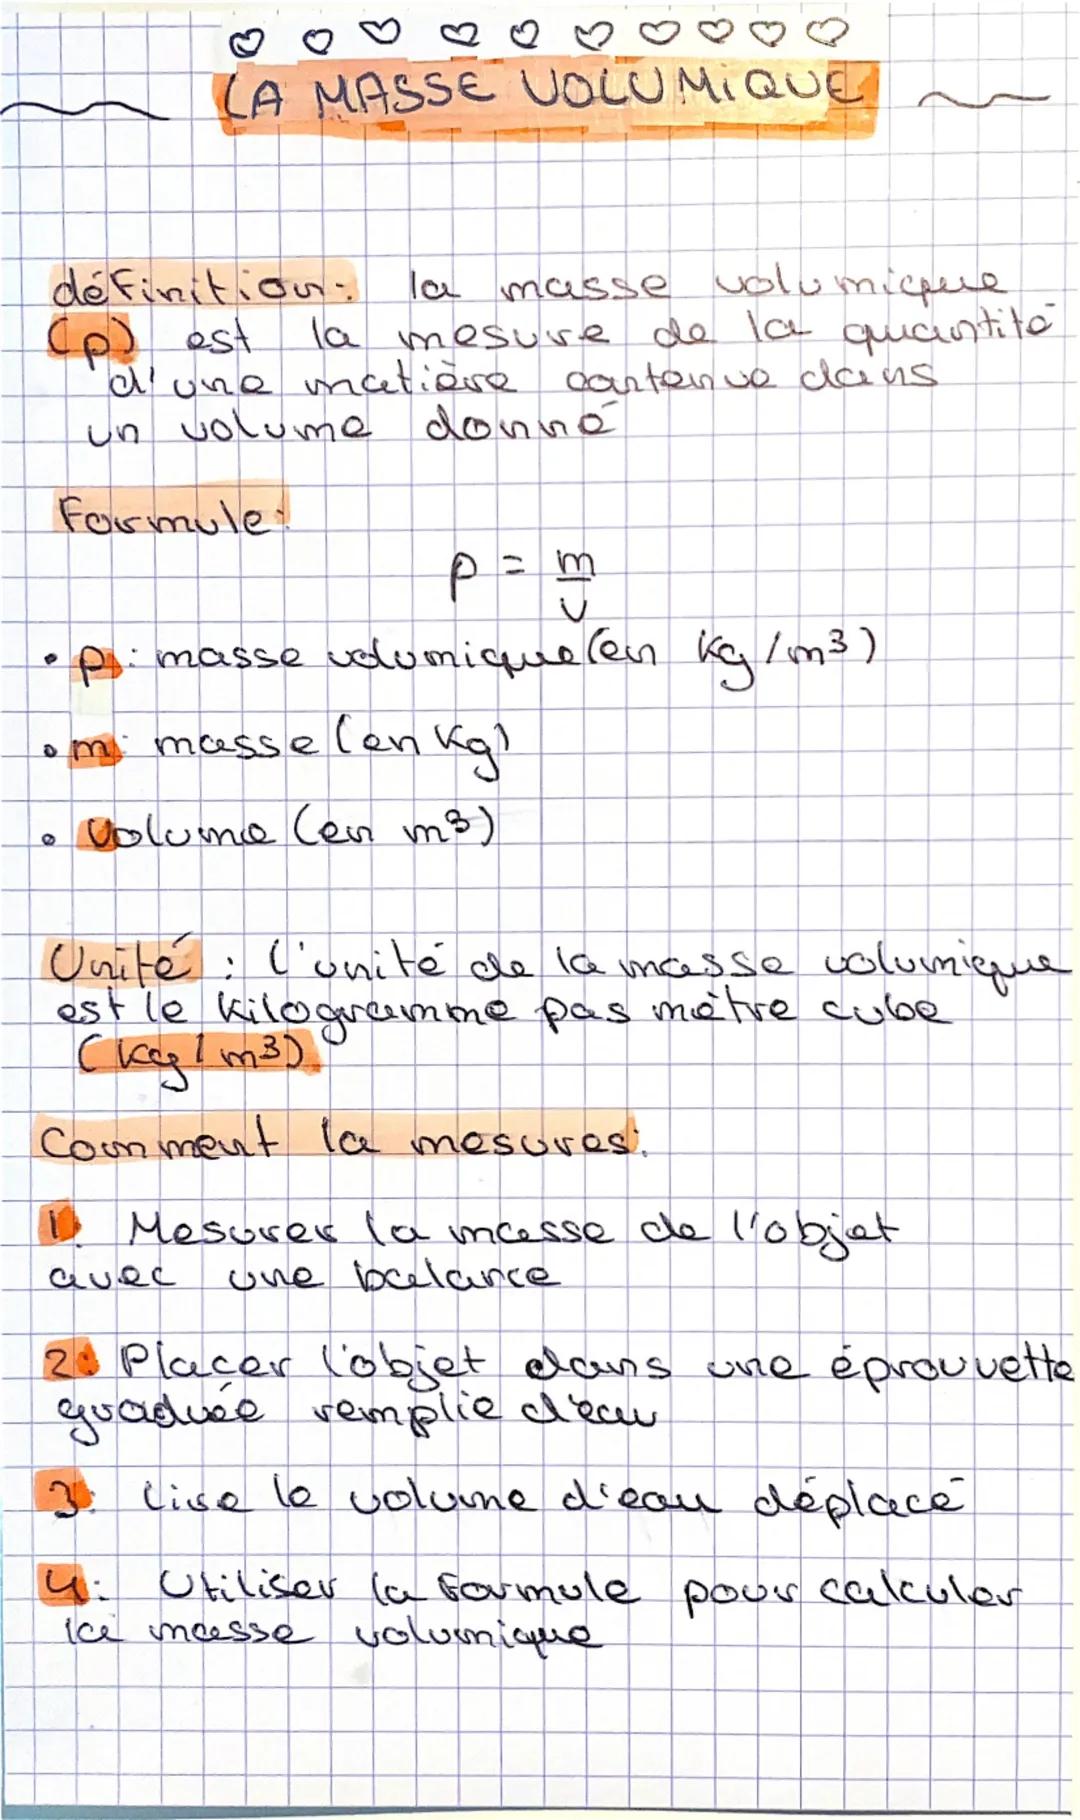 LA MASSE VOLUMIQUE
définition: la masse volumique
(p) est la mesure de la quantité
d'une matière contenue dans
un volume donné
Formule:
p = m
v
• p: masse volumique (en kg/m³)
• m: masse (en kg)
• Volume (en m³)
Unité : L'unité de la masse volumique
est le kilogramme pas mètre cube
(kg/m³)
Comment la mesurer:
1. Mesurer la masse de l'objet
avec une balance
2: Placer l'objet dans une éprouvette
graduée remplie d'eau
3: Lire le volume d'eau déplacé
4: Utiliser la formule pour calculer
la masse volumique